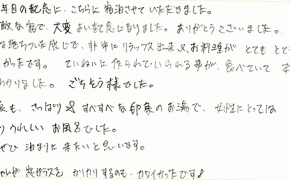 年目の記念に、こちらに宿泊させていただきました。
敵な宿で、大変よい記念になりました。ありがとうございました。
な落ちついた感じで、非常にリラックス出来、お料理が とても とて
かったです。ていねいに作られているのが、食べていて
わかりました。ごちそう様でした。
も、さっぱり 又 すべすべな印象のお湯で、女性にとっては
うれしい お風呂でした。
ぜひ 泊まりに来たいと思います。
窓ガラスを カリカリするのも、カワイかったです♪